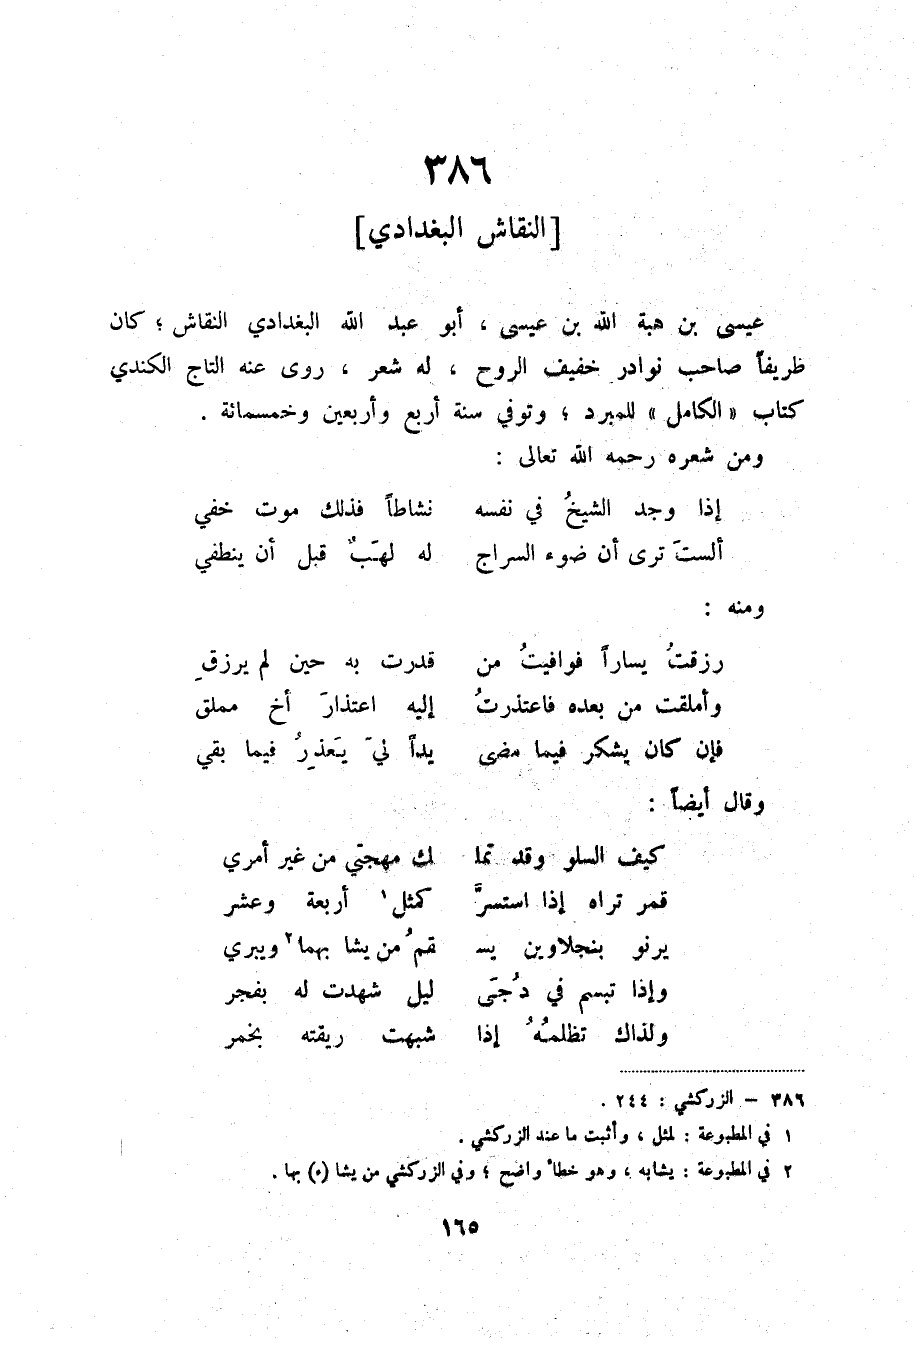 ٣٨٦
[النقاش البغدادي]
عيسى بن هبة الله بن عيسى ، أبو عبد الله البغدادي النقاش ؛ كان
ظريفاً صاحب نوادر خفيف الروح ، له شعر ، روى عنه التاج الكندي
كتاب « الكامل » للمبرد ؛ وتوفي سنة أربع وأربعين وخمسمائة .
ومن شعره رحمه الله تعالى :
إذا وجد الشيخُ في نفسه نشاطاً فذلك موت خفي
ألستَ ترى أن ضوء السراج له لهَبٌ قبل أن ينطفي
ومنه :
رزقتُ يساراً فوافيتُ من قدرت به حين لم يرزقِ
وأملقت من بعده فاعتذرتُ إليه اعتذارَ أخ مملق
فإن كان يشكر فيما مضى يداً ليَ يَعذِرُ فيما بقي
وقال أيضاً :
كيف السلو وقد تملـ ـك مهجتي من غير أمري
قمر تراه إذا استسرَّ كمثل١ أربعة وعشر
يرنو بنجلاوين يسـ ـقمُ من يشا بهما٢ ويبري
وإذا تبسم في دُجَى ليل شهدت له بفجر
ولذاك تظلمُهُ إذا شبهت ريقته بخمر
٣٨٦ - الزركشي : ٢٤٤ .
١ في المطبوعة : لمثل ، وأثبت ما عند الزركشي .
٢ في المطبوعة : يشابه ، وهو خطأ واضح ؛ وفي الزركشي من يشا (٥) بها .
١٦٥